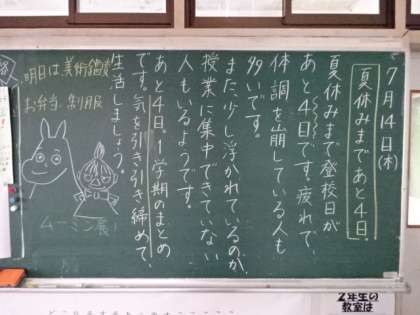 7月14日(木)
夏休みまであと4日
夏休みまで登校日が
あと4日です。疲れで、
体調を崩している人も
多いです。
また、少し浮かれているのか、
授業に集中できていない
人もいるようです。
あと4日。1学期のまとめ
です。気を引き引き締めて、
生活しましょう。
明日は美術鑑賞
お弁当、制服
ムーミン展!
2年生の
教室は